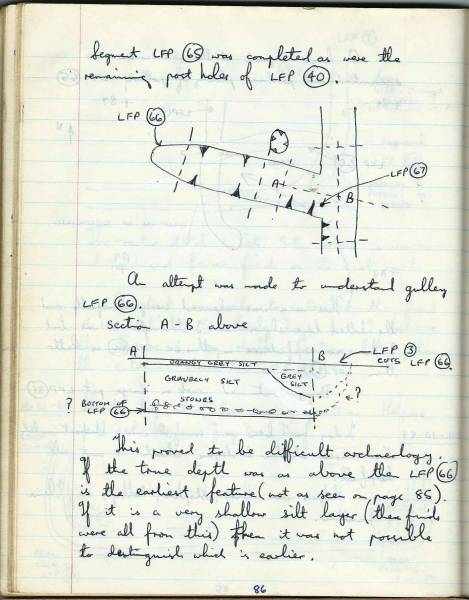 Segment LFP 65 was completed as were the
remaining post holes of LFP 40.
LFP 66
LFP 67
A
B
An attempt was made to understand gulley
LFP 66.
section A-B above
A
B
LFP 3
CUTS LFP 66
ORANGY GREY SILT
GRAVELLY SILT
GREY
SILT
?
STONES
? BOTTOM OF
LFP 66
This proved to be difficult archaeology.
If the true depth was as above then LFP 66
is the earliest feature (not as seen on page 85).
If it is a very shallow silt layer (the finds
were all from this) then it was not possible
to distinguish which is earlier.
86